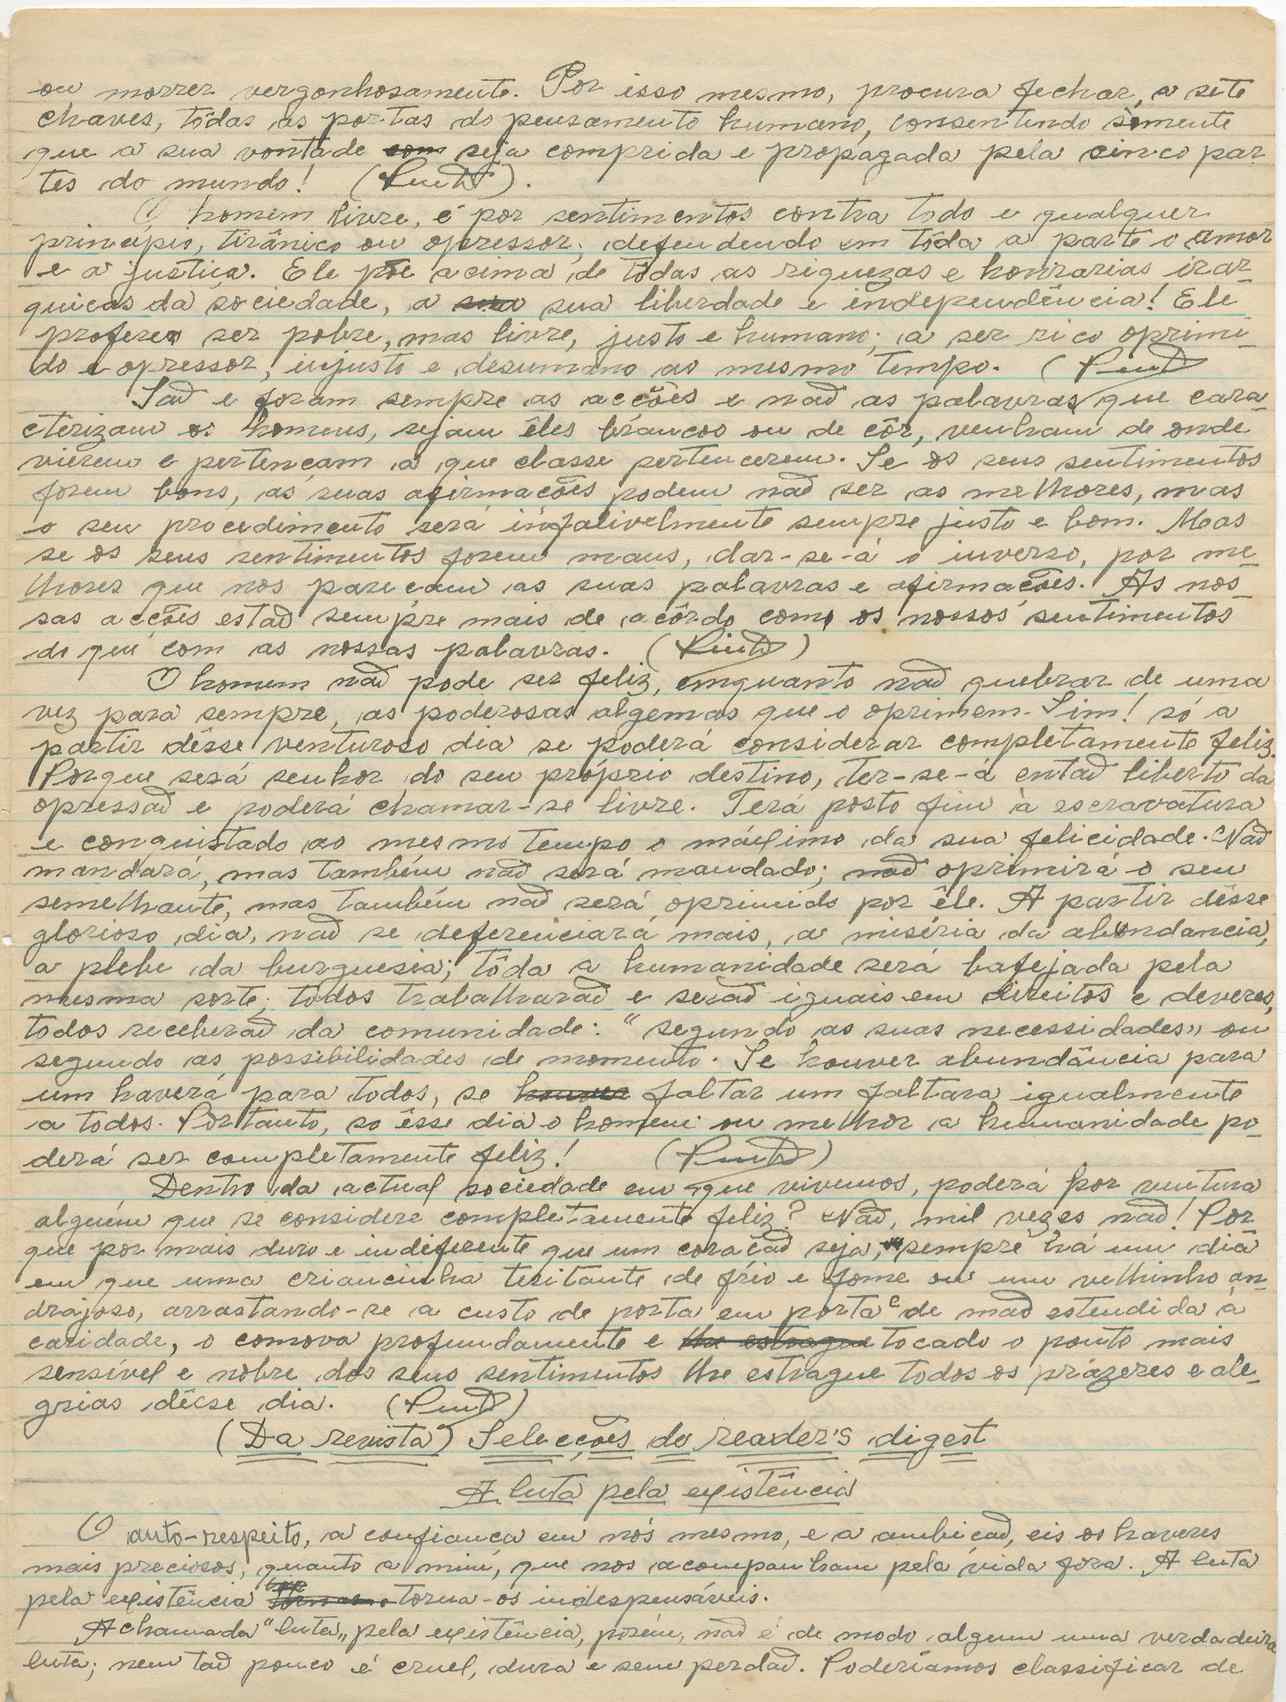 ou morrer vergonhosamente. Por isso mesmo, procura fechar, a sete
chaves, tôdas as portas do pensamento humano, consentindo sòmente
que a sua vontade com seja comprida e propagada pela cinco par-
tes do mundo! (Pinto).
O homem livre, é por sentimentos contra todo e qualquer
princípio, tirânico ou opressor; defendendo em tôda a parte o amor
e a justiça. Ele põe acima de tôdas as riquezas e honrarias irar-
quicas da sociedade, a sua sua liberdade e independência! Ele
prefere ser pobre, mas livre, justo e humano; a ser rico oprimi-
do e opressor, injusto e desumano ao mesmo tempo. (Pinto
São e foram sempre as acções e não as palavras, que cara-
cterizam os homens, sejam êles brancos ou de côr, venham de onde
vierem e pertençam a que classe pertencerem. Se os seus sentimentos
forem bons, as suas afirmações podem não ser as melhores, mas
o seu procedimento será infalivelmente sempre justo e bom. Mas
se os seus sentimentos forem maus, dar-se-á o inverso, por me-
lhores que nos pareçam as suas palavras e afirmações. As nos-
sas acções estão sempre mais de acôrdo como os nossos sentimentos
do que com as nossas palavras. (Pinto)
O homem não pode ser feliz, enquanto não quebrar de uma
vez para sempre, as poderosas algemas que o oprimem. Sim! só a
partir dêsse venturoso dia se poderá considerar completamente feliz.
Porque será senhor do seu próprio destino, ter-se-á então liberto da
opressão e poderá chamar-se livre. Terá posto fim à escravatura
e conquistado ao mesmo tempo o máximo da sua felicidade. Não
mandará, mas também não será mandado; não oprimirá o seu
semelhante, mas também não será oprimido por êle. A partir dêsse
glorioso dia, não se deferenciará mais, a miséria da abundancia,
a plebe da burguesia; tôda a humanidade será bafejada pela
mesma sorte; todos trabalharão e serão iguais em direitos e deveres,
todos receberão da comunidade: "segundo as suas necessidades" ou
segundo as possibilidades de momento. Se houver abundância para
um haverá para todos, se houver faltar um faltara igualmente
a todos. Portanto, so êsse dia o homem ou melhor a humanidade po-
derá ser completamente feliz! (Pinto)
Dentro da actual sociedade em que vivemos, poderá por ventura
alguém que se considere completamente feliz? Não, mil vezes não! Por-
que por mais duro e indeferente que um coração seja, sempre há um dia
em que uma criancinha teritante de frio e fome ou um velhinho an-
drajoso, arrastando-se a custo de porta em porta e de mão estendida à
caridade, o comova profundamente e lhe estrague tocado o ponto mais
sensível e nobre dos seus sentimentos lhe estrague todos os prazeres e ale-
grias dêsse dia. (Pinto)
(Da revista) Selecções do reader's digest
A luta pela existência
O auto-respeito, a confiança em nós mesmo, e a ambição, eis os haveres
mais preciosos, quanto a mim, que nos acompanham pela vida fora. A luta
pela existência torna-os indespensáveis.
A chamada "luta" pela existência, porém, não é de modo algum uma verdadeira
luta; nem tão pouco é cruel, dura e sem perdão. Poderíamos classificar de